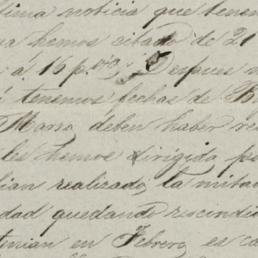 tima noticia que tenem
a hemos citado de 21
á 16 p.% Despues n
í tenemos fechas de B
Marso, deben haber re
les hemos dirigido po
lian realizado la mitad
dad quedando rescindi
tinian en Febrero, es co